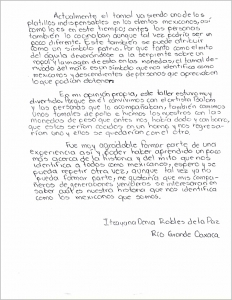 Actualmente el tamal va siendo uno de los
platillos indispensables en los eventos mexicanos, así
como lo es en este tiempo antes las personas
también lo cocinaban aunque tal vez podría ser un
poco diferente. Esto también se puede atribuir
como un símbolo patrio. Por que tanto como el mito
del águila devorándose a la serpiente sobre un
nopal y la imagen de esto en las monedas, el tamal de-
rivado del maíz es un símbolo que nos identifica como
mexicanos y descendientes de personas que apreciaban
lo que podían obtener.
En mi opinión propia, este taller estuvo muy
divertido desde que el convivimos con el artista
y las personas que lo acompañaban también comimos
unos tamales de pollo e hicimos los nuestros con las
monedas de peso que antes nos había dado y con barro,
que estos serían cocidos en un horno y nos regresa-
rían uno y ellos se quedarían con el otro.
Fue muy agradable formar parte de una
experiencia así y poder haber aprendido un poco
más acerca de la historia y del mito que nos
identifica a todos como mexicanos, espero y se
pueda repetir otra vez, aunque tal vez ya no
pueda formar parte, me gustaría que mis compa-
ñeros de generaciones venideras se interesaran en
saber cuál es nuestra historia que nos identifica
como los mexicanos que somos.
Robles de la Paz
Río Grande Oaxaca